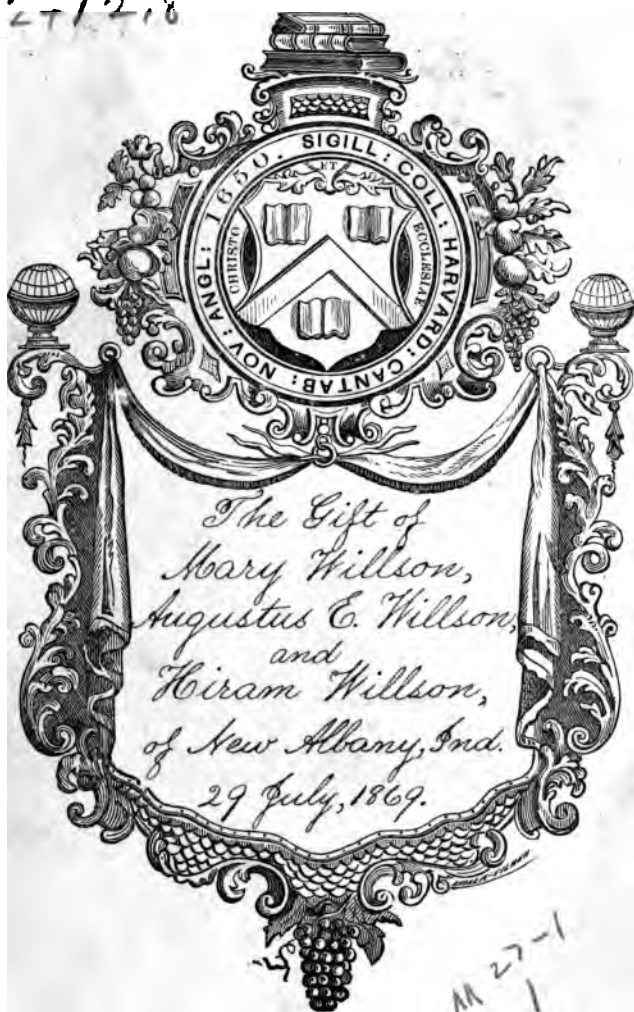 SIGILL: COLL: HARVARD: CANTAB: NOV: ANGL: 1650.
ET
CHRISTO
ECCLESIAE
The Gift of
Mary Willson,
Augustus E. Willson,
and
Hiram Willson,
of New Albany, Ind.
29 July, 1869.
27-1